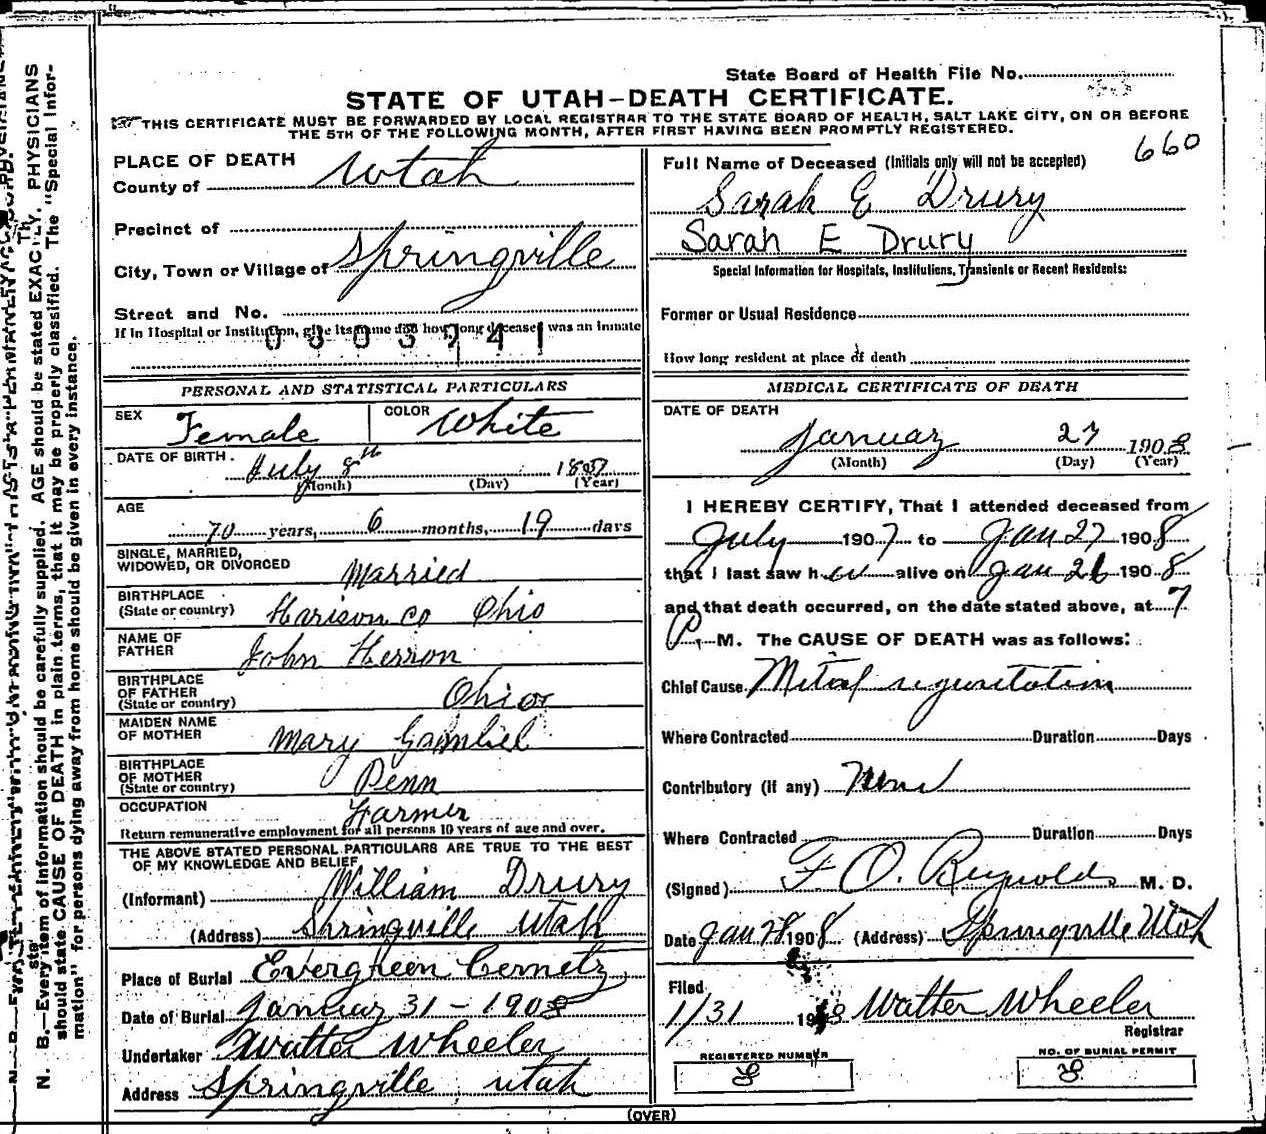 State Board of Health File No.
STATE OF UTAH—DEATH CERTIFICATE.
THIS CERTIFICATE MUST BE FORWARDED BY LOCAL REGISTRAR TO THE STATE BOARD OF HEALTH, SALT LAKE CITY, ON OR BEFORE
THE 5TH OF THE FOLLOWING MONTH, AFTER FIRST HAVING BEEN PROMPTLY REGISTERED.
660
PLACE OF DEATH
County of Utah
Precinct of
City, Town or Village of Springville
Street and No.
If in Hospital or Institution, give its name and how long deceased was an inmate
0303741
Full Name of Deceased (Initials only will not be accepted)
Sarah E Drury
Sarah E Drury
Special Information for Hospitals, Institutions, Transients or Recent Residents:
Former or Usual Residence
How long resident at place of death
PERSONAL AND STATISTICAL PARTICULARS
SEX Female COLOR White
DATE OF BIRTH. July 8th
(Month) (Day) (Year)
AGE
70 years, 6 months, 19 days
SINGLE, MARRIED,
WIDOWED, OR DIVORCED Married
BIRTHPLACE
(State or country) Harison co Ohio
NAME OF
FATHER John Herron
BIRTHPLACE
OF FATHER
(State or country) Ohio
MAIDEN NAME
OF MOTHER Mary Gambiel
BIRTHPLACE
OF MOTHER
(State or country) Penn
OCCUPATION Farmer
Return remunerative employment for all persons 10 years of age and over.
THE ABOVE STATED PERSONAL PARTICULARS ARE TRUE TO THE BEST
OF MY KNOWLEDGE AND BELIEF
(Informant) William Drury
(Address) Springville Utah
Place of Burial Evergreen Cemetry
Date of Burial January 31 - 1908
Undertaker Walter Wheeler
Address Springville Utah
MEDICAL CERTIFICATE OF DEATH
DATE OF DEATH
January 27 1908
(Month) (Day) (Year)
I HEREBY CERTIFY, That I attended deceased from
July 1907 to Jan 27 1908
that I last saw her alive on Jan 26 1908
and that death occurred, on the date stated above, at 7
P. M. The CAUSE OF DEATH was as follows:
Chief Cause Mitral reguritation
Where Contracted Duration Days
Contributory (if any) None
Where Contracted Duration Days
(Signed) F O. Reynolds M. D.
Date Jan 28 1908 (Address) Springville Utah
Filed
1/31 1908 Walter Wheeler
Registrar
REGISTERED NUMBER
8
NO. OF BURIAL PERMIT
8
(OVER)
N. B.—Every item of information should be carefully supplied. AGE should be stated EXACTLY. PHYSICIANS
should state CAUSE OF DEATH in plain terms, that it may be properly classified. The "Special Infor-
mation" for persons dying away from home should be given in every instance.